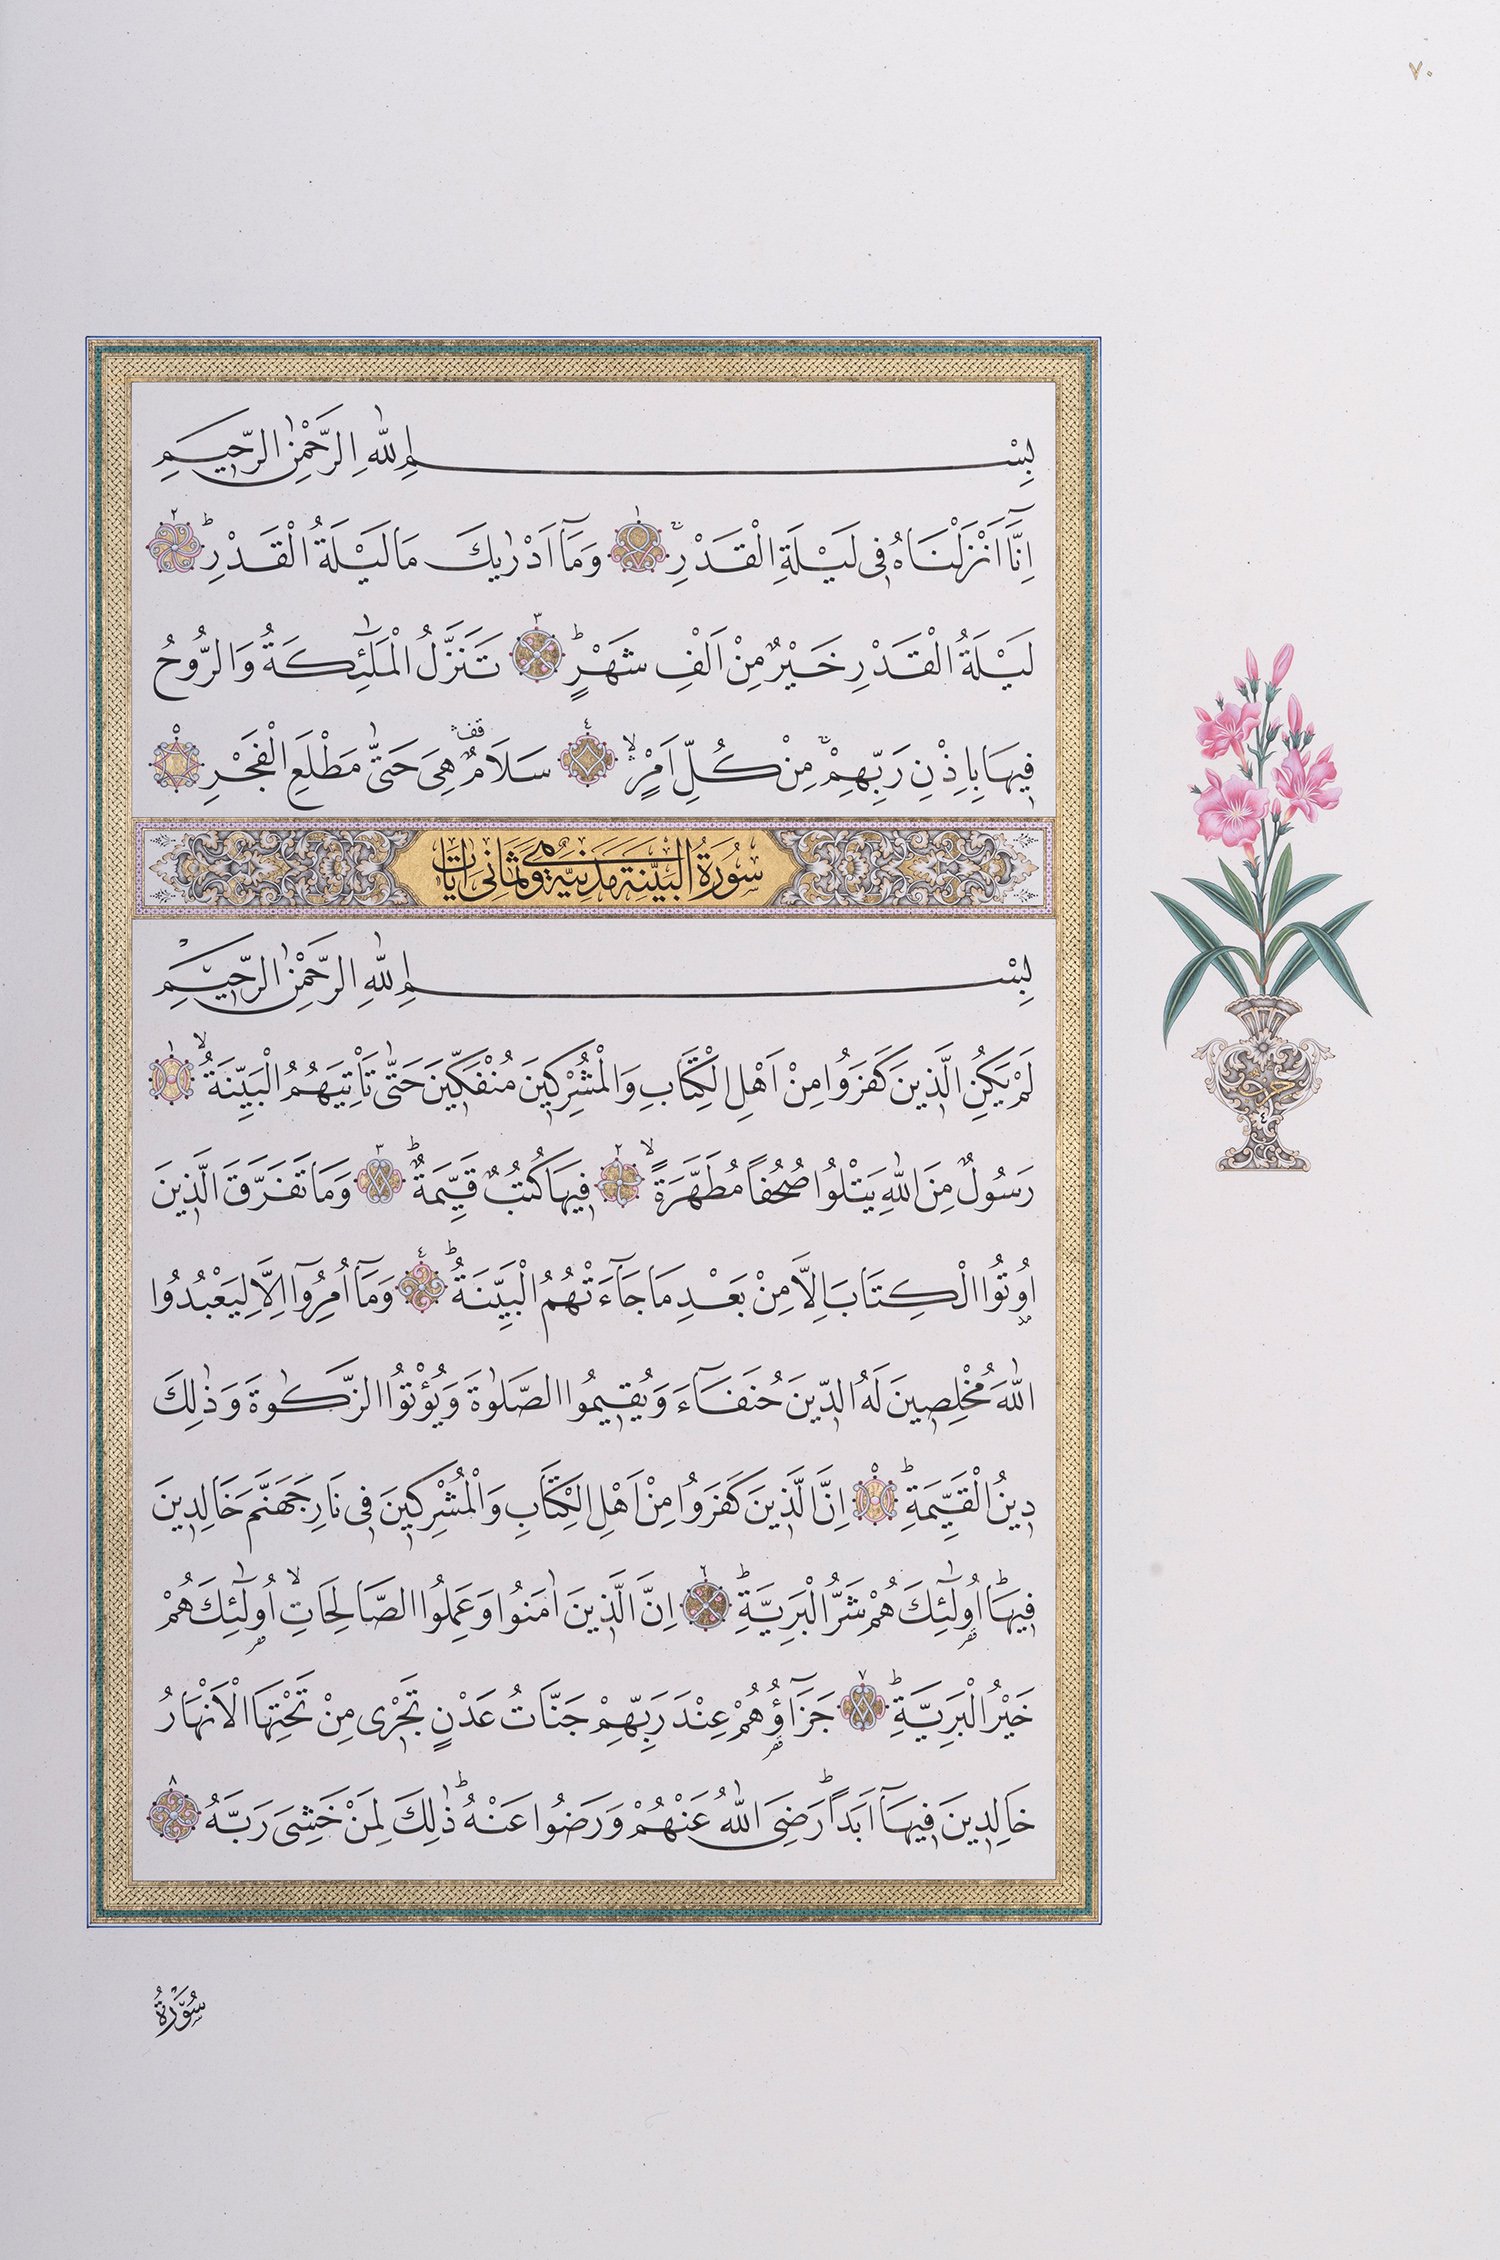 ٧٠
بِسْمِ اللّٰهِ الرَّحْمٰنِ الرَّحِيمِ
اِنَّٓا اَنْزَلْنَاهُ فِى لَيْلَةِ الْقَدْرِ ۚ ١ وَمَٓا اَدْرٰيكَ مَا لَيْلَةُ الْقَدْرِ ؕ ٢
لَيْلَةُ الْقَدْرِ خَيْرٌ مِنْ اَلْفِ شَهْرٍ ؕ ٣ تَنَزَّلُ الْمَلٰٓئِكَةُ وَالرُّوحُ
فِيهَا بِاِذْنِ رَبِّهِمْ ۚ مِنْ كُلِّ اَمْرٍ ۙ ٤ سَلَامٌ قف هِىَ حَتّٰى مَطْلَعِ الْفَجْرِ ٥
سُورَةُ الْبَيِّنَةِ مَدَنِيَّةٌ وَهِىَ ثَمَانِى اٰيَاتٍ
بِسْمِ اللّٰهِ الرَّحْمٰنِ الرَّحِيمِ
لَمْ يَكُنِ الَّذِينَ كَفَرُوا مِنْ اَهْلِ الْكِتَابِ وَالْمُشْرِكِينَ مُنْفَكِّينَ حَتّٰى تَاْتِيَهُمُ الْبَيِّنَةُ ۙ ١
رَسُولٌ مِنَ اللّٰهِ يَتْلُوا صُحُفًا مُطَهَّرَةً ۙ ٢ فِيهَا كُتُبٌ قَيِّمَةٌ ؕ ٣ وَمَا تَفَرَّقَ الَّذِينَ
اُوتُوا الْكِتَابَ اِلَّا مِنْ بَعْدِ مَا جَٓاءَتْهُمُ الْبَيِّنَةُ ؕ ٤ وَمَٓا اُمِرُٓوا اِلَّا لِيَعْبُدُوا
اللّٰهَ مُخْلِصِينَ لَهُ الدِّينَ حُنَفَٓاءَ وَيُقِيمُوا الصَّلٰوةَ وَيُؤْتُوا الزَّكٰوةَ وَذٰلِكَ
دِينُ الْقَيِّمَةِ ؕ ٥ اِنَّ الَّذِينَ كَفَرُوا مِنْ اَهْلِ الْكِتَابِ وَالْمُشْرِكِينَ فِى نَارِ جَهَنَّمَ خَالِدِينَ
فِيهَا ؕ اُولٰٓئِكَ هُمْ شَرُّ الْبَرِيَّةِ ؕ ٦ اِنَّ الَّذِينَ اٰمَنُوا وَعَمِلُوا الصَّالِحَاتِ ۙ اُولٰٓئِكَ هُمْ
خَيْرُ الْبَرِيَّةِ ؕ ٧ جَزَٓاؤُهُمْ عِنْدَ رَبِّهِمْ جَنَّاتُ عَدْنٍ تَجْرِى مِنْ تَحْتِهَا الْاَنْهَارُ
خَالِدِينَ فِيهَٓا اَبَدًا ؕ رَضِىَ اللّٰهُ عَنْهُمْ وَرَضُوا عَنْهُ ؕ ذٰلِكَ لِمَنْ خَشِىَ رَبَّهُ ٨
سُورَةُ